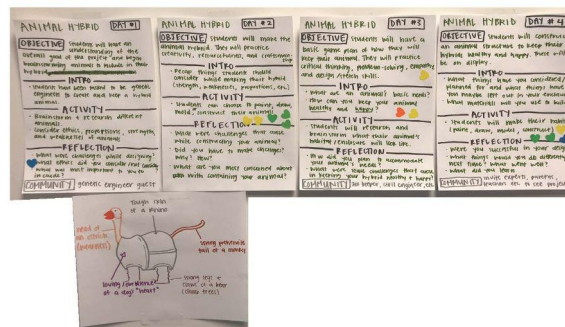 ANIMAL HYBRID DAY #1
OBJECTIVE students will have an
understanding of the
overall goal of the project and begin
brainstorming animals to include in their
hybrid
INTRO
Students have been asked to be genetic
engineers to create and keep a hybrid
animal.
ACTIVITY
Brainstorm & research different
animals.
Consider ethics, proportions, strengths,
and weaknesses of animals
REFLECTION
What were challenges while designing?
What ethics did you consider most
What was most important to you to
include?
COMMUNITY genetic engineer guest
ANIMAL HYBRID DAY #2
OBJECTIVE Students will make the
animal hybrid. They will practice
creativity, resourcefulness, and craftsman-
ship
INTRO
Recap things students should
consider while making their hybrid
(strength, materials, proportions, etc.)
ACTIVITY
Students can choose to paint, draw,
mold, construct their animal
REFLECTION
What were challenges that came
while constructing your animal?
Did you have to make changes?
Why? How?
What are you most concerned about
with containing your animal?
ANIMAL HYBRID DAY #3
OBJECTIVE Students will have a
basic game plan of how they will
keep their animal. They will practice
critical thinking, problem-solving, empathy
and design/tech skills.
INTRO
What are an animal's basic needs?
How can you keep your animal
healthy and happy?
ACTIVITY
Students will research and
brainstorm what their animal's
habitat/enclosure will look like.
REFLECTION
How did you plan to accommodate
your animal's needs?
What were challenges
in keeping your hybrid healthy & happy?
COMMUNITY zoo keeper, civil engineer, etc.
ANIMAL HYBRID DAY #4
OBJECTIVE Students will construct
an animal structure to keep their
hybrid healthy and happy. These will
be on display.
INTRO
What things have you considered/
planned for and what things have
you maybe left out in your
What materials will you use to build
ACTIVITY
Students will make their habitat
(paint, draw, model, construct)
REFLECTION
Were you successful in your
What things would you do differently
next time? What went well?
What did you learn
COMMUNITY invite experts, parents,
teachers etc. to see projects
Tough skin
of a rhino
head of
an ostrich
strong prehensile
tail of a monkey
loving
of a dogs "heart"
strong legs &
claws of a bear
(climb trees)